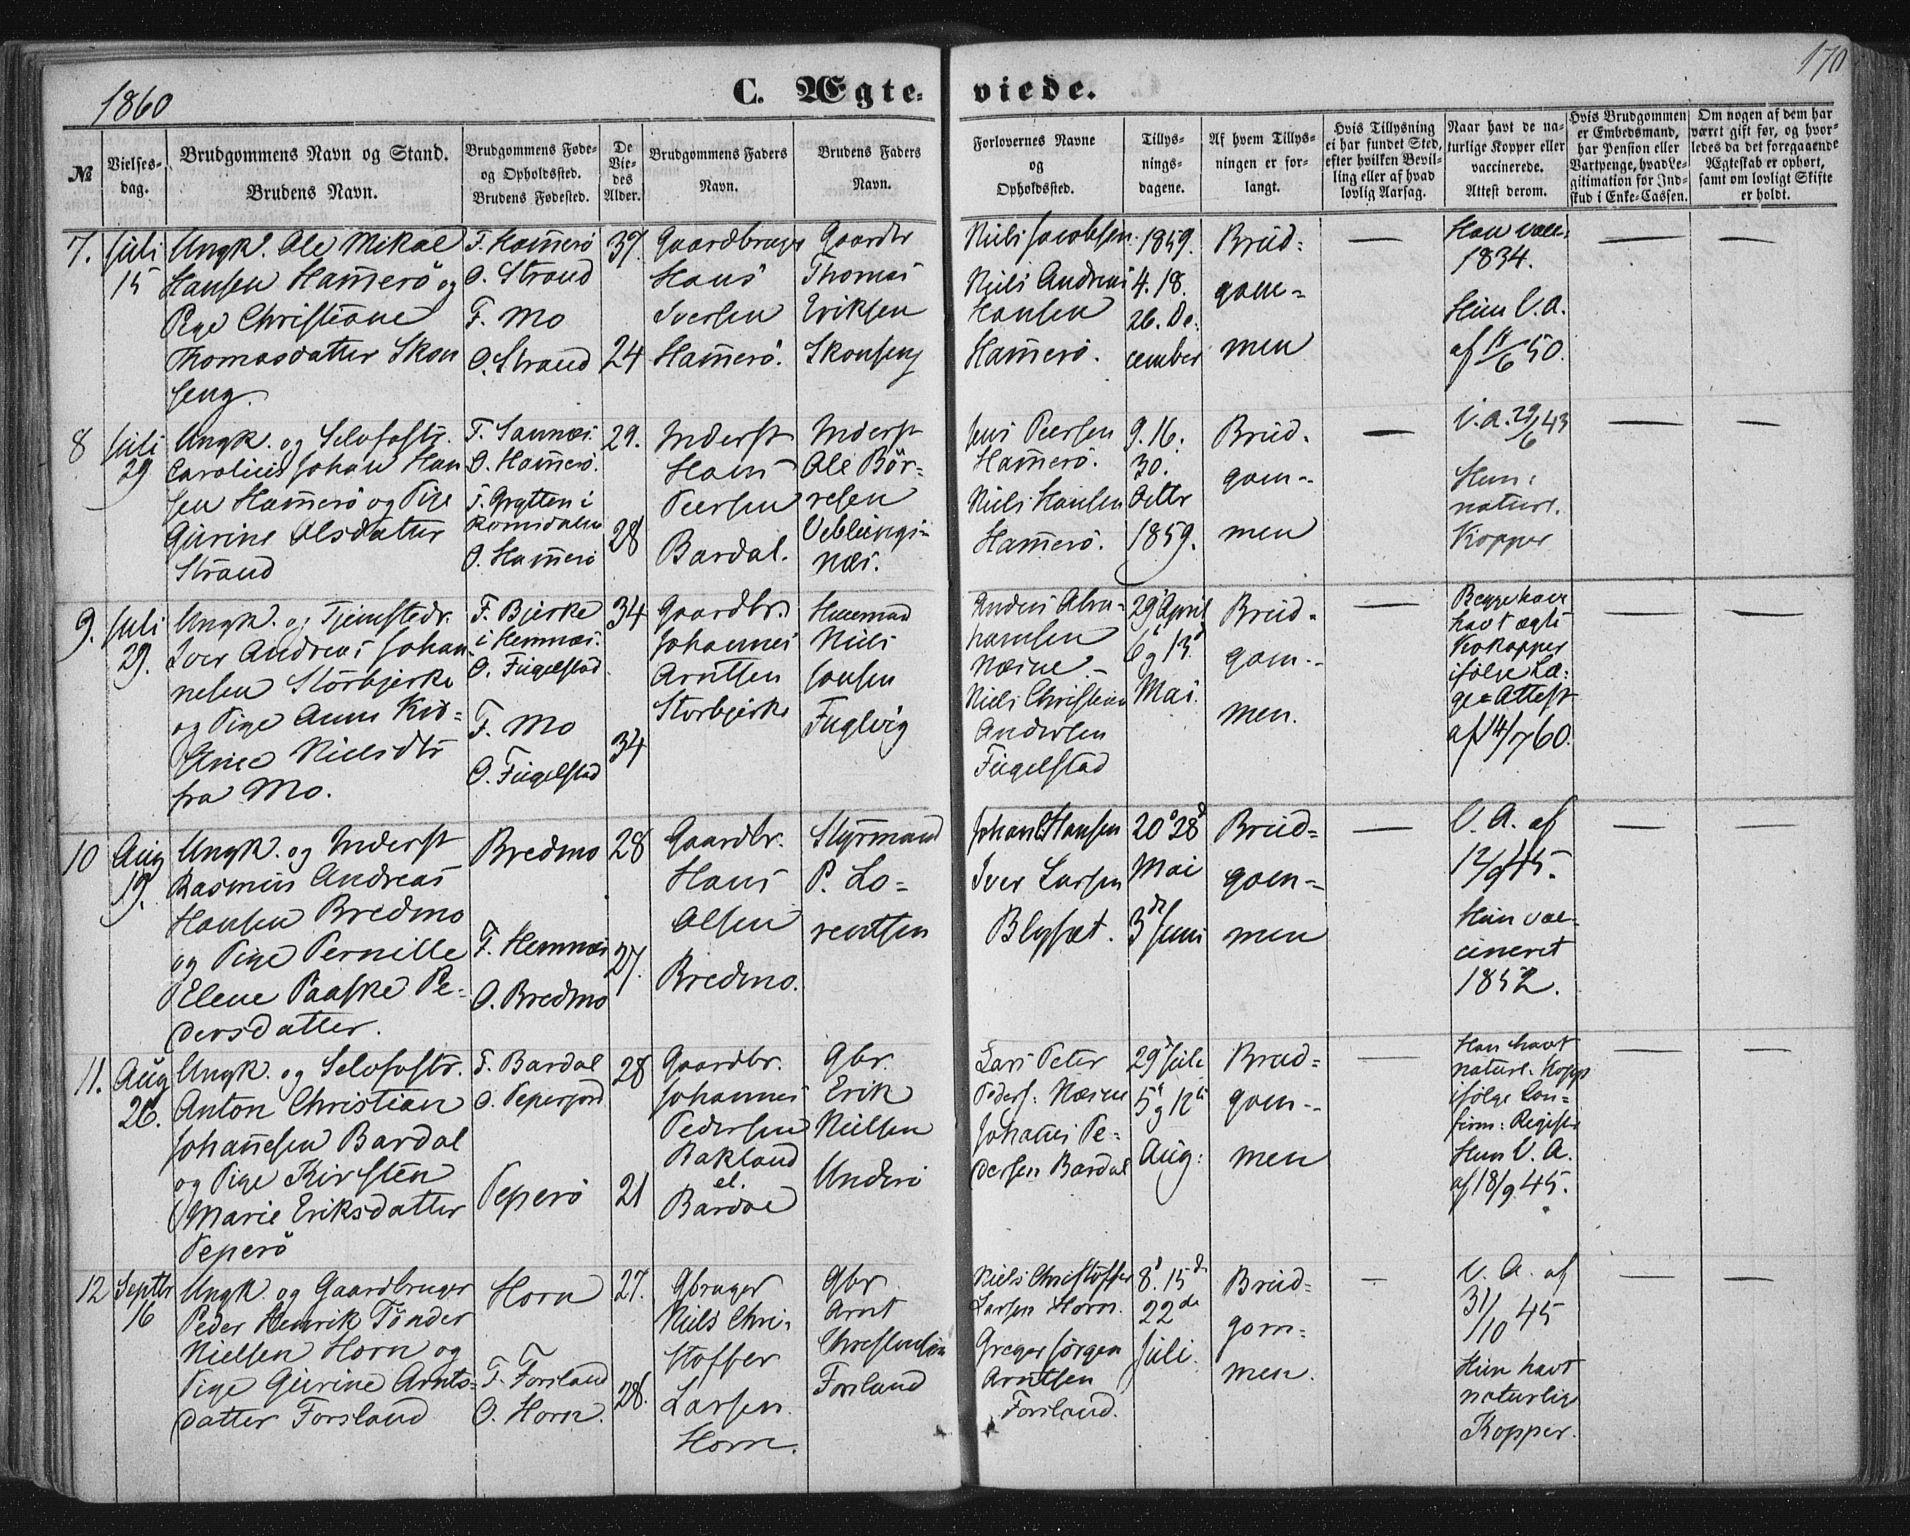 1860
C. Ægte-
viede.
170
№
Vielses-
dag.
Brudgommens Navn og Stand.
Brudens Navn.
Brudgommens Føde-
og Opholdssted.
Brudens Fødested.
De
Vie-
des
Alder.
Brudgommens Faders
Navn.
Brudens Faders
Navn.
Forlovernes Navne
og
Opholdssted.
Tillys-
nings-
dagene.
Af hvem Tillys-
ningen er for-
langt.
Hvis Tillysning
ei har fundet Sted,
efter hvilken Bevil-
ling eller af hvad
lovlig Aarsag.
Naar havt de na-
turlige Kopper eller
vaccinerede.
Attest derom.
Hvis Brudgommen
er Embedsmand,
har Pension eller
Vartpenge, hvad Le-
gitimation for Ind-
skud i Enke-Cassen.
Om nogen af dem har
været gift før, og hvor-
ledes da det foregaaende
Ægteskab er ophørt,
samt om lovligt Skifte
er holdt.
7.
Juli
15
Ungk. Ole Mikal
Hansen Hamerö og
Pige Christiane
Thomasdatter Skon
seng.
F. Hamerö
O. Strand
F. Mo
O. Strand
37.
24
Gaardbruger
Hans
Iversen
Hamerö.
Gaardbr
Thomas
Eriksen
Skonseng
Niels Jacobsen
Niels Andreas
Hansen
Hamerö.
1859.
4. 18.
26. De-
cember
Brud-
gom-
men
—
Han vacc.
1834.
Hun V. A.
af 11/6 50.
—
—
8
Juli
29
Ungk. og Selvfostr.
Carolius Johan Han
sen Hamerö og Pige
Gurine Olsdatter
Strand
F. Sannæs.
O. Hamerö.
F. Grytten i
Romsdalen
O. Hamerö
29.
28
Inderst
Hans
Peersen
Bardal.
Inderst
Ole Bör-
resen
Veblungs-
næs.
Jens Peersen
Hamerö.
Niels Hansen
Hamerö.
9. 16.
30.
Octbr
1859.
Brud-
gom-
men
—
V. A. 29/6 43
Hun:
naturl.
Kopper
—
—
9.
Juli
29.
Ungk. og Tjenstedr.
Iver Andreas Johan-
nesen Storbjerke
og Pige Anne Kir-
stine Nielsdtr
fra Mo.
F. Bjerke
i Hemnæs.
O. Fugelstad.
F. Mo
O. Fugelstad
34
34
Gaardbr.
Johannes
Arntsen
Storbjerke
Huusmand
Niels
Jonsen
Fuglvig
Anders Abra-
hamsen
Næsne.
Niels Christian
Andersen
Fugelstad
29 April
6 og 13
Mai.
Brud-
gom-
men.
—
Begge have
havt ægte
Kokopper
ifølge Læ-
ge-Attest
af 14/7 60.
—
—
10
Aug
19.
Ungk. og Inderst
Rasmus Andreas
Hansen Bredmo
og Pige Pernille
Elene Paaske Pe-
dersdatter.
Bredmo
F. Hemnæs
O. Bredmo
28
27.
Gaardbr.
Hans
Olsen
Bredmo.
Styrmand
P. Lo-
rentsen
Johan Hansen
Iver Larsen
Blysæt.
20 28
Mai
3 Juni
Brud-
gom-
men
—
V. A. af
12/9 45.
Hun vac-
cineret
1852.
—
—
11.
Aug
26.
Ungk. og Selvfostr.
Anton Christian
Johanesen Bardal
og Pige Kirsten
Marie Eriksdatter
Teperö
F. Bardal
O. Teperjord
Teperö
28
21
Gaardbr.
Johannes
Pedersen
Bakland
el.
Bardal
Gbr.
Erik
Nielsen
Underö
Lars Peter
Peders. Næsne
Johanes Pe-
dersen Bardal
29 Juli
5 og 12
Aug:
Brud-
gom-
men
—
Han havt
naturl. Kopp
ifølge Con-
firm: Register
Hun V. A.
af 18/9 45.
—
—
12
Septbr
16
Ungk. og Gaardbruger
Peder Henrik Tönder
Nielsen Horn og
Pige Gurine Arnts-
datter Forsland
Horn
F. Forsland
O. Horn.
27.
28.
Gbruger
Niels Chri-
stoffer
Larsen
Horn.
Gbr
Arnt
Christensen
Forsland
Niels Christoffer
Larsen Horn.
Greger Jörgen
Arntsen
Forsland.
8. 15
22de
Juli.
Brud-
gom-
men.
—
V. A. af
31/10 45
Hun havt
naturlige
Kopper.
—
—